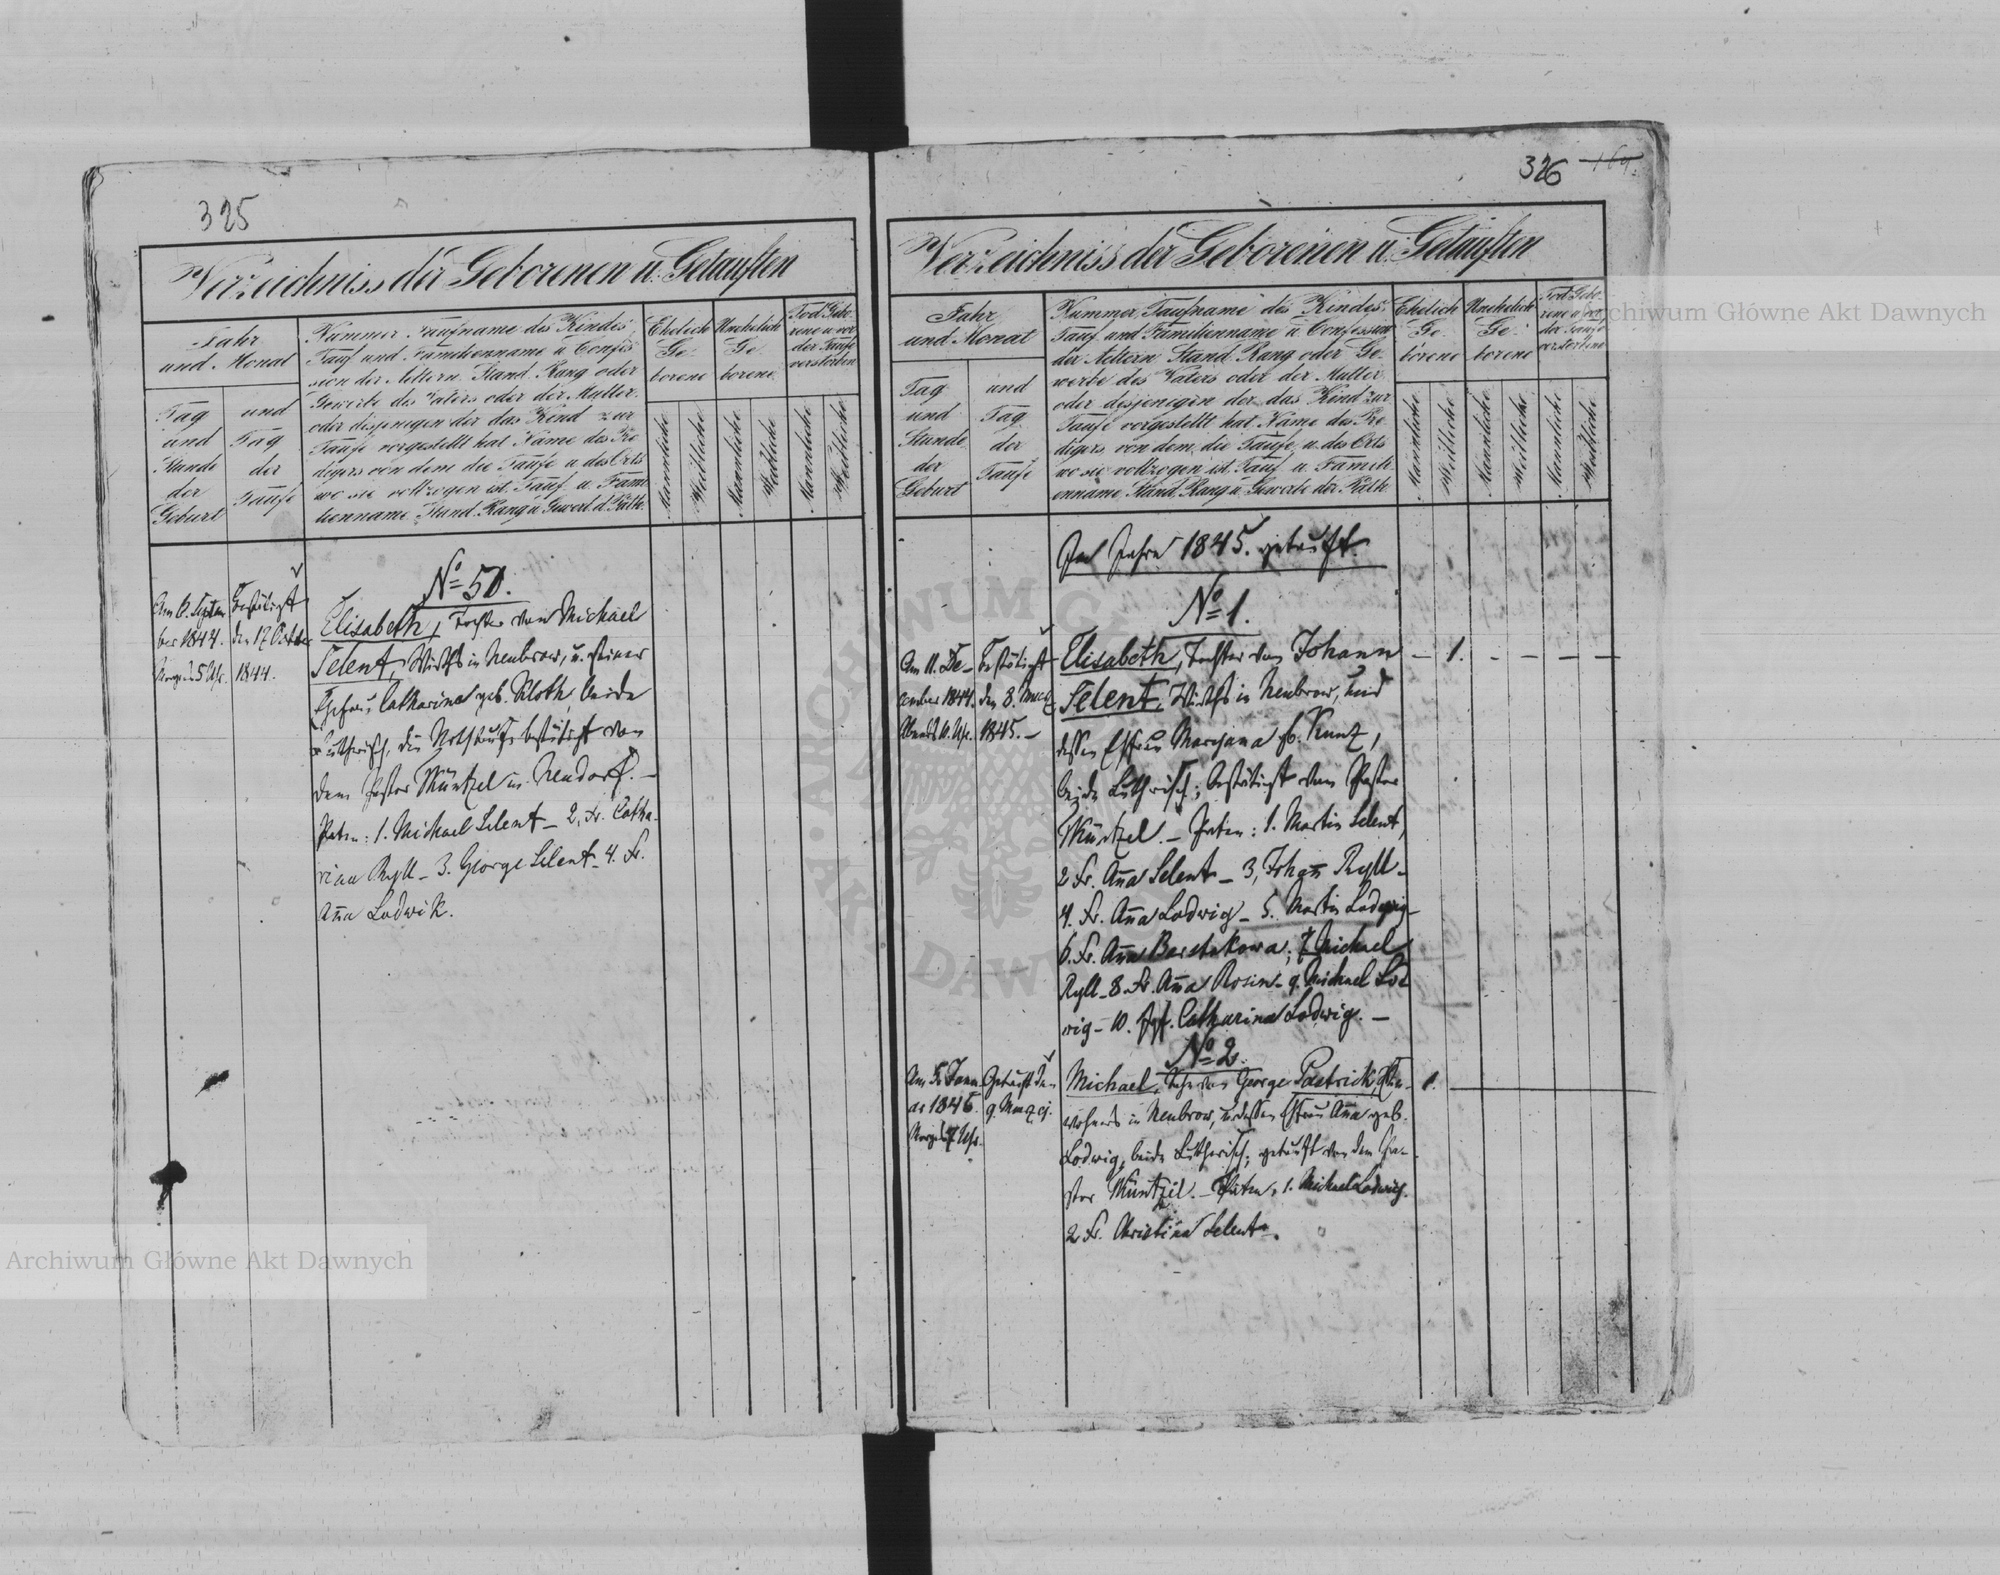 325
Verzeichniss der Geborenen u. Getauften
Jahr
und Monat
Tag
und
Stunde
der
Geburt
und
Tag
der
Taufe
Nummer Taufname des Kindes,
Tauf und Familienname u Confes
sion der Aeltern Stand Rang oder
Gewerbe des Vaters oder der Mutter
oder desjenigen der das Kind zur
Taufe vorgestellt hat Name des Pre
digers von dem die Taufe u des Orts
wo sie vollzogen ist Tauf u Fami
lienname Stand Rang u Gewerb d. Path.
Ehelich
Ge
borene
Unehelich
Ge
borene
Tod Gebo
rene u vor
der Taufe
verstorben
Männliche
Weibliche
Männliche
Weibliche
Männliche
Weibliche
Am 6. Septem
ber 1844.
Morgens 5 Uhr.
Bestätigt
den 17 October
1844.
No 50.
Elisabeth, Tochter von Michael
Selent, Wirths in Neubrow, u. seiner
Ehefrau Catharina geb. Kloth, beide
Lutherisch, die Nothtaufe bestätigt von
dem Pastor Müntzel in Neudorf. –
Paten: 1. Michael Selent – 2. Fr. Catha-
rina Ryll – 3. George Selent – 4. Fr.
Anna Ludwik.
326 169.
Verzeichniss der Geborenen u. Getauften
Jahr
und Monat
Tag
und
Stunde
der
Geburt
und
Tag
der
Taufe
Nummer Taufname des Kindes,
Tauf und Familienname u Confession
der Aeltern Stand Rang oder Ge
werbe des Vaters oder der Mutter
oder desjenigen der das Kind zur
Taufe vorgestellt hat Name des Pre
digers von dem die Taufe u des Orts
wo sie vollzogen ist Tauf u Famili
enname Stand Rang u Gewerbe der Path
Ehelich
Ge
borene
Unehelich
Ge
borene
Tod Gebo
rene u vor
der Taufe
verstorbene
Männliche
Weibliche
Männliche
Weibliche
Männliche
Weibliche
Im Jahre 1845. getauft.
No 1.
Am 11. De-
cember 1844.
Abends 10. Uhr.
Bestätigt
den 8. März
1845. –
Elisabeth, Tochter von Johann – 1. – – – –
Selent, Wirths in Neubrow, und
dessen Ehefrau Marijana gb. Kunz,
beide Lutherisch; bestätigt vom Pastor
Müntzel. – Paten: 1. Martin Selent,
2 Fr. Anna Selent – 3, Johann Ryll –
4. Fr. Anna Lodwig – 5. Martin Lodwig –
6. Fr. Anna 7. Michael
Ryll – 8. Fr. Anna Rosin – 9. Michael Lod
wig – 10. Jgf. Catharina Lodwig. –
No 2.
Am 5. Janu
ar 1845.
Morgens 7 Uhr.
Getauft den
9. März ej.
Michael, Sohn von George Paetrick, Ein- 1.
wohners in Neubrow, u. dessen Ehefrau Anna geb.
Lodwig, beide Lutherisch; getauft von dem Pa-
stor Müntzel. – Paten: 1. Michael Lodwig.
2 Fr. Christina Selent.
Archiwum Główne Akt Dawnych
Archiwum Główne Akt Dawnych